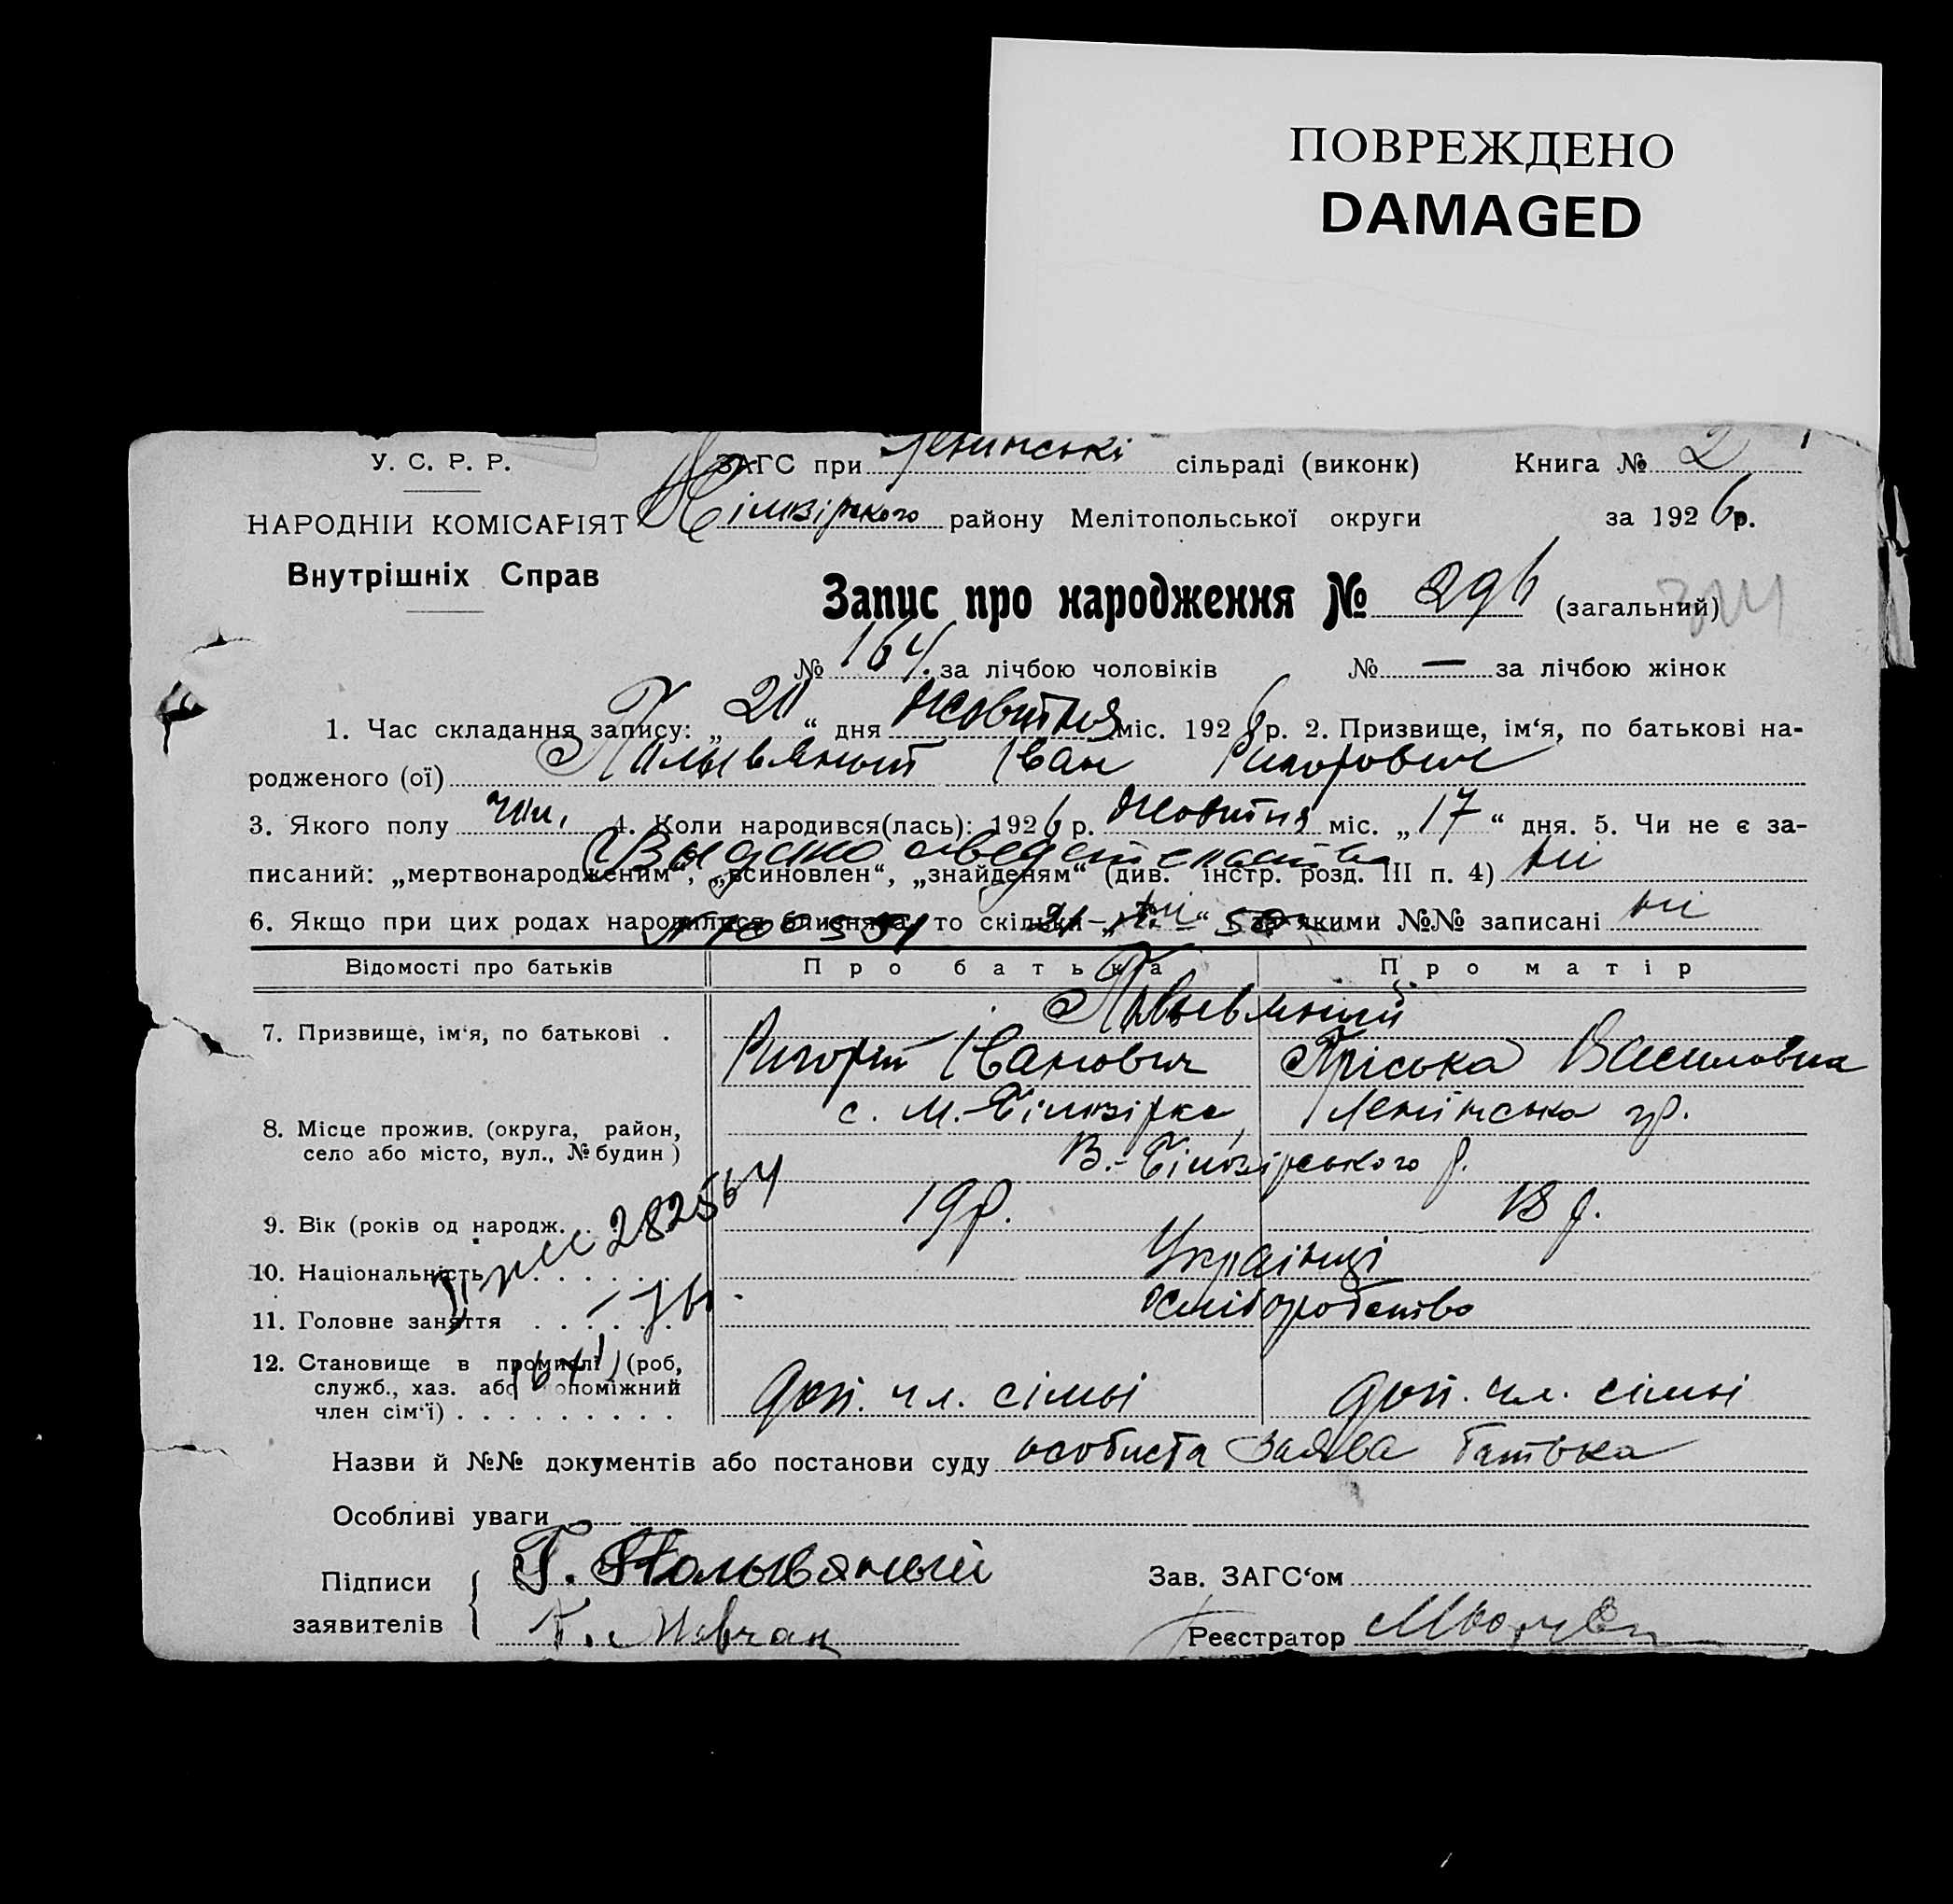 ПОВРЕЖДЕНО
DAMAGED
У. С. Р. Р.
ЗАГС при Ленинські сільраді (виконк) Книга № 2
НАРОДНІЙ КОМІСАРІЯТ
району Мелітопольської округи за 1926 р.
Внутрішніх Справ
Запис про народження № 296 (загальний)
№ 164. за лічбою чоловіків № — за лічбою жінок
1. Час складання запису: „ 20 “ дня Жовтня міс. 1926 р. 2. Призвище, ім‘я, по батькові на-
родженого (ої) Польвяний Іван Григорович
3. Якого полу чол. 4. Коли народився(лась): 1926 р. Жовтня міс. „ 17 “ дня. 5. Чи не є за-
Выдано
писаний: „мертвонародженим“, „всиновлен“, „знайденям“ (див. інстр. розд. III п. 4) ні
6. Якщо при цих родах народилися близнята, то скільки „ ні “ і за якими №№ записані ні
Відомості про батьків Про батька Про матір
7. Призвище, ім‘я, по батькові .
Григорій Іванович Пріська Василовна
8. Місце прожив. (округа, район,
село або місто, вул., № будин)
с. М.-Білозірка, Ленінська гр.
В.-Білозірського р.
282564
9. Вік (років од народж. 19 р. 18 р.
10. Національність Українці
11. Головне заняття Хліборобство
12. Становище в промислі (роб,
служб., хаз. або допоміжний
член сім‘ї) доп. чл. сімьі доп. чл. сімьі
Назви й №№ документів або постанови суду особиста заява батька
Особливі уваги
Підписи
заявителів
Г. Польвяный
Зав. ЗАГС‘ом
Реєстратор